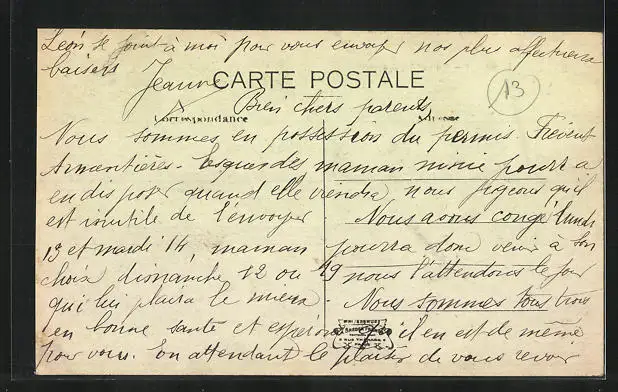 Léon se joint à moi pour vous envoyer nos plus affectueux
baisers
Jeanne
CARTE POSTALE
13
Bien chers parents,
Correspondance
Adresse
Nous sommes en possession du permis. Frévent
Armentières. Lesquendes maman mimie pourra
en disposer quand elle viendra nous jugeons qu'il
est inutile de l'envoyer Nous avons congé lundi
13 et mardi 14, maman pourra donc venir à son
choix dimanche 12 ou 19 nous l'attendons le jour
qui lui plaira le mieux. Nous sommes tous trois
en bonne santé et espérons qu'il en est de même
pour vous. En attendant le plaisir de vous revoir